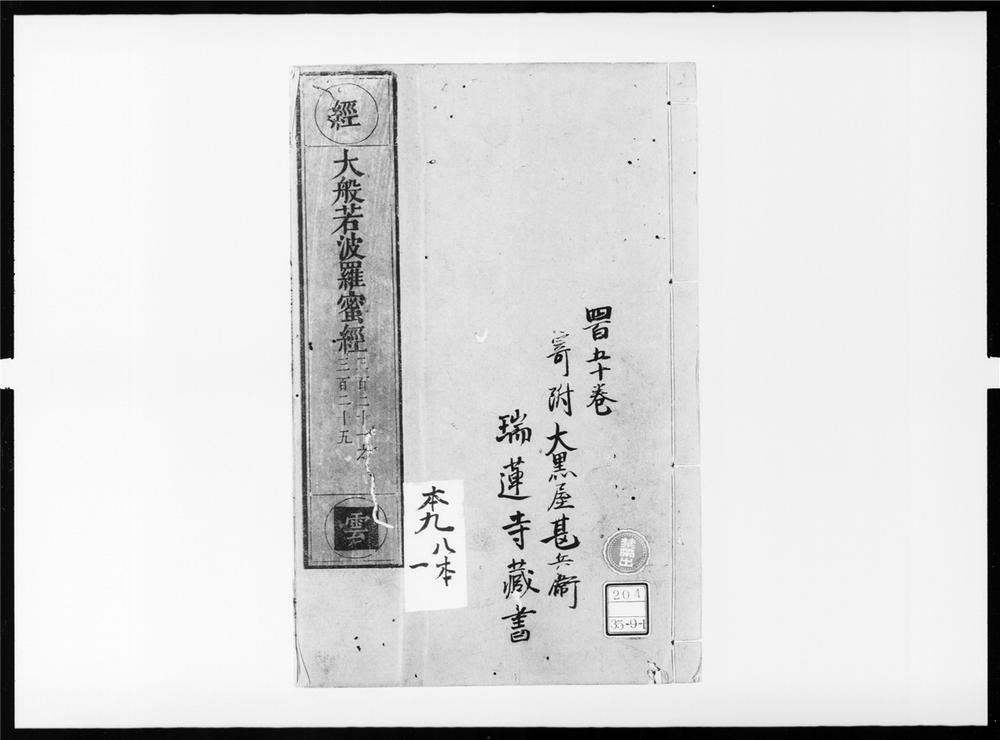 四百五十巻
寄附大黒屋甚兵衛
瑞蓮寺藏書
禁帶出
204
35-9-1
本九
八本
一
經
大般若波羅蜜經
三百二十一之
三百二十五
雲